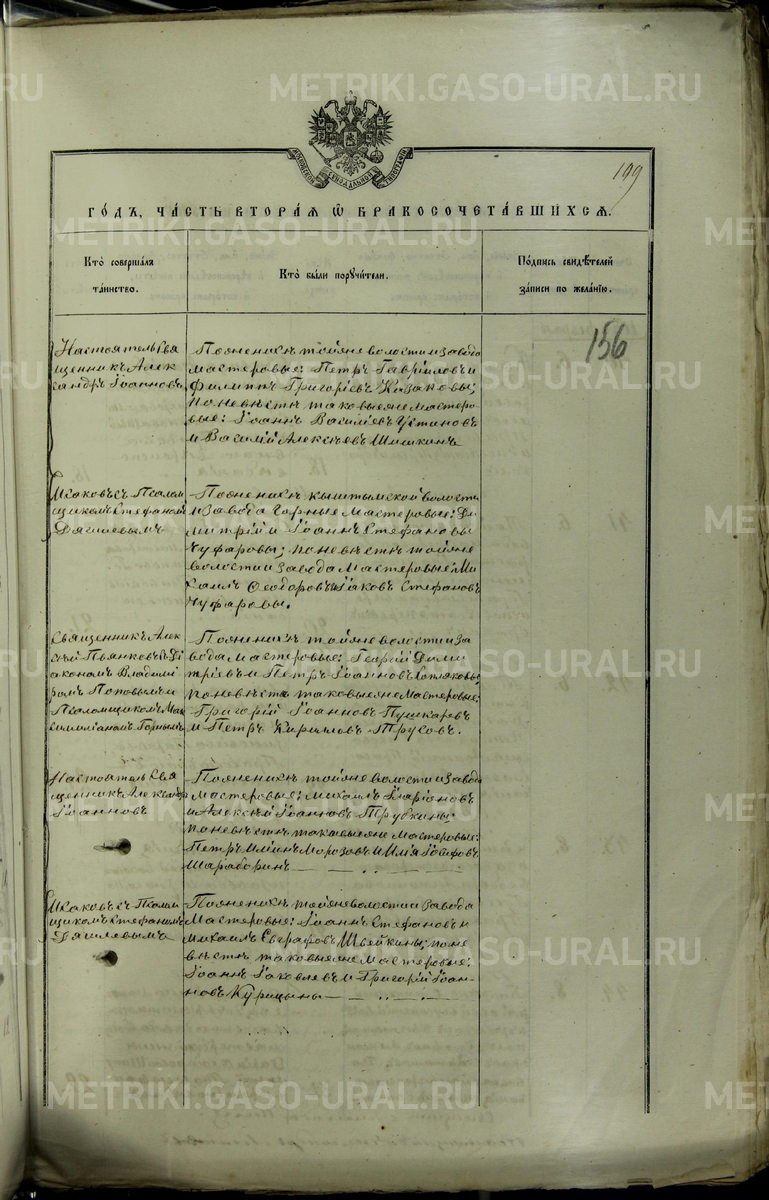 METRIKI.GASO-URAL.RU
199
ГО́ДЪ, ЧА́СТЬ ВТОРА́Я Ѡ БРАКОСОЧЕТА́ВШИХСЯ.
Кто̀ соверша́лъ
та́инство.
Кто̀ бы́ли порꙋчи́тели.
По́дпись свидѣ́телей
за́писи по жела́нїю.
156
Настоятель Свя
щенникъ Алек
сандръ Іоанновъ
По женихѣ той же волости и завода
Мастеровые: Петръ Гавріиловъ и
Филиппъ Григоріевъ Казаковы;
по невѣстѣ таковые же Мастеро-
вые: Іоаннъ Василіевъ Устиновъ
и Василій Алексѣевъ Шишкинъ
Псалом
щикомъ Стефаномъ
По женихѣ Кыштымской волости
и завода горные Мастеровые: Ди
митрій и Іоаннъ Стефановы
Чуфаровы; по невѣстѣ той же
волости и завода Мастеровые: Ми
хаилъ Ѳеодоровъ и Іаковъ Стефановъ
Чуфаровы.
Священникъ Алек
сѣй Пьянковъ съ Ді
акономъ Владимі
ромъ Поповымъ и
Псаломщикомъ Мак
симиліаномъ Горнымъ
По женихѣ той же волости и за
вода Мастеровые: Георгій Дими
тріевъ и Петръ Іоанновъ
по невѣстѣ таковые же Мастеровые:
Григорій Іоанновъ Пушкаревъ
и Петръ Кириловъ Трусовъ.
Настоятель Свя
щенникъ Александръ
Іоанновъ
По женихѣ той же волости и завода
Мастеровые: Михаилъ Иларіоновъ
и Алексѣй Іоанновъ Трубкины
по невѣстѣ такіе же Мастеровые:
Петръ Ильинъ Морозовъ и Илья
Шараборинъ
Псалом
щикомъ Стефаномъ
По женихѣ той же волости и завода
Мастеровые: Іоаннъ Стефановъ и
Михаилъ Евграфовъ Швейкины; по не
вѣстѣ таковые же Мастеровые:
Іоаннъ Іаковлевъ и Григорій Іоан-
новъ Курицыны